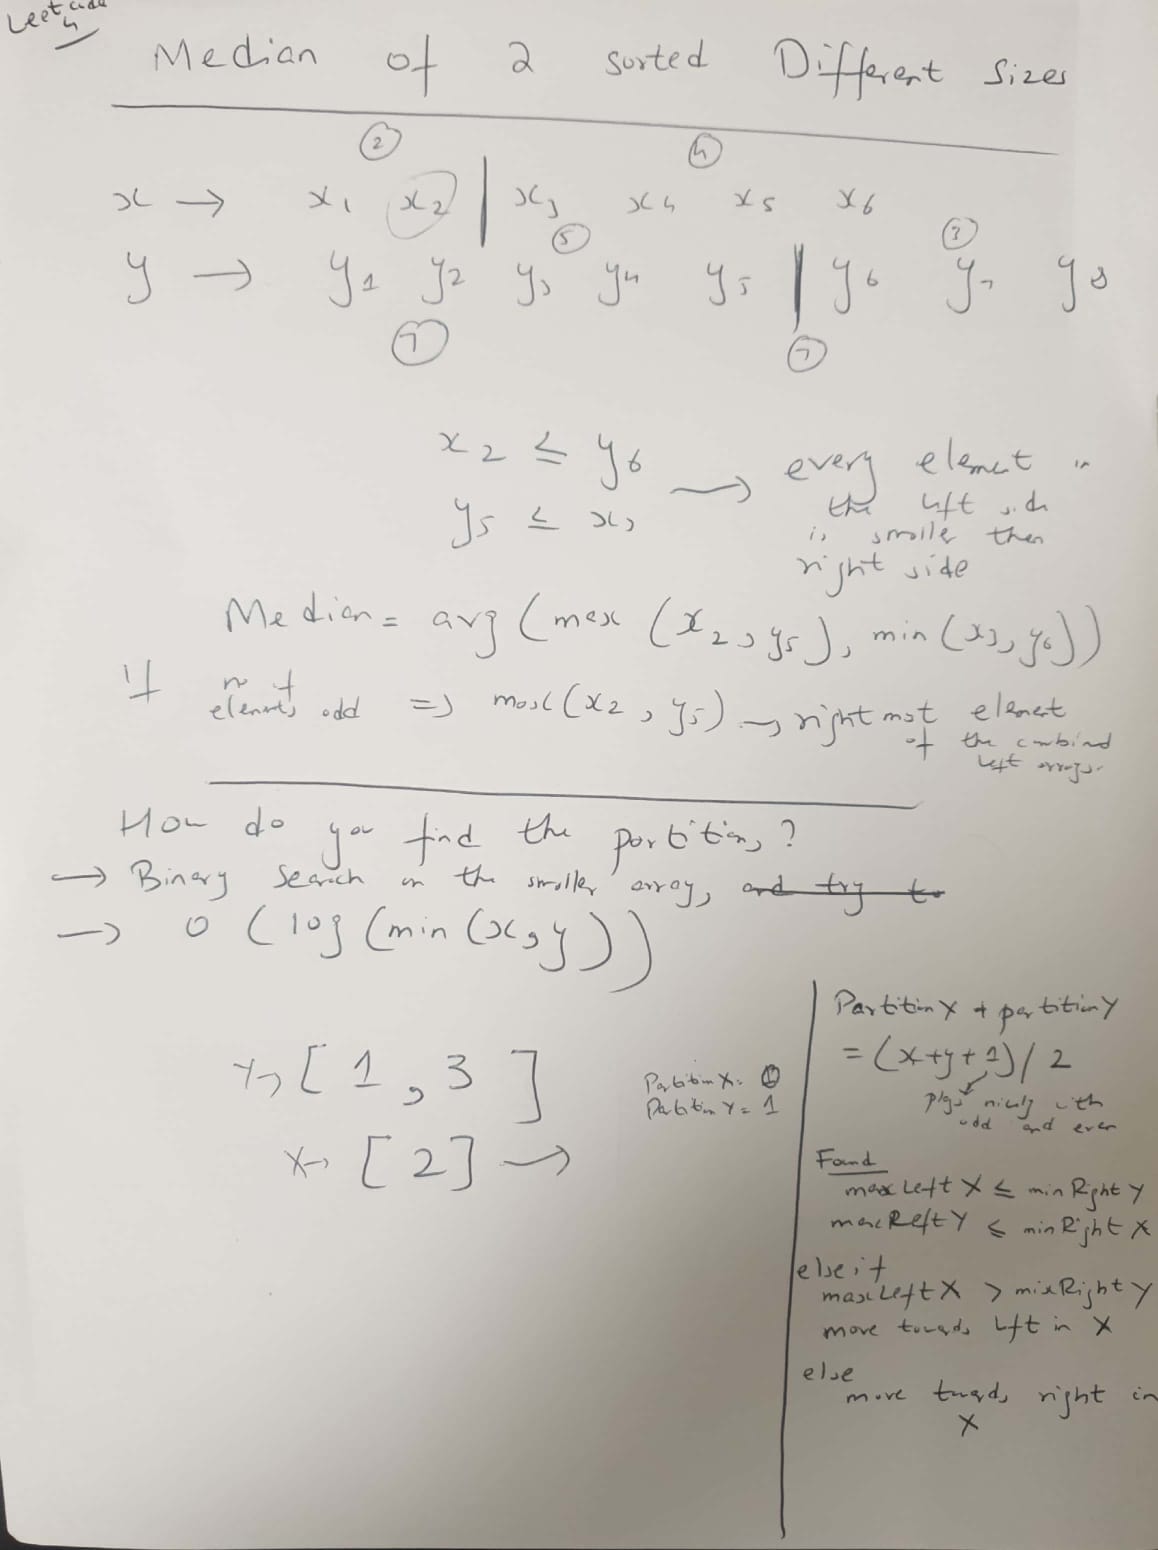 Leetcode
4
Median of 2 sorted Different Sizes
② ④
x → x1 x2 | x3 x4 x5 x6
⑤ ③
y → y1 y2 y3 y4 y5 | y6 y7 y8
⑦ ⑦
x2 ≤ y6
y5 ≤ x3
→ every element in
the left side
is smaller then
right side
Median = avg (max (x2, y5), min (x3, y6))
If no of
elements odd => max (x2, y5) → right most element
of the combined
left arrays.
How do you find the partitions?
→ Binary Search on the smaller array, and try to
→ O (log (min (x, y)))
Y→ [ 1, 3 ]
X→ [ 2 ] →
Partition X = 0
Partition Y = 1
Partition X + partition Y
= (x+y+1)/2
plays nicely with
odd and even
Found
max Left X ≤ min Right Y
max Left Y ≤ min Right X
else if
max Left X > min Right Y
move towards left in X
else
move towards right in
X